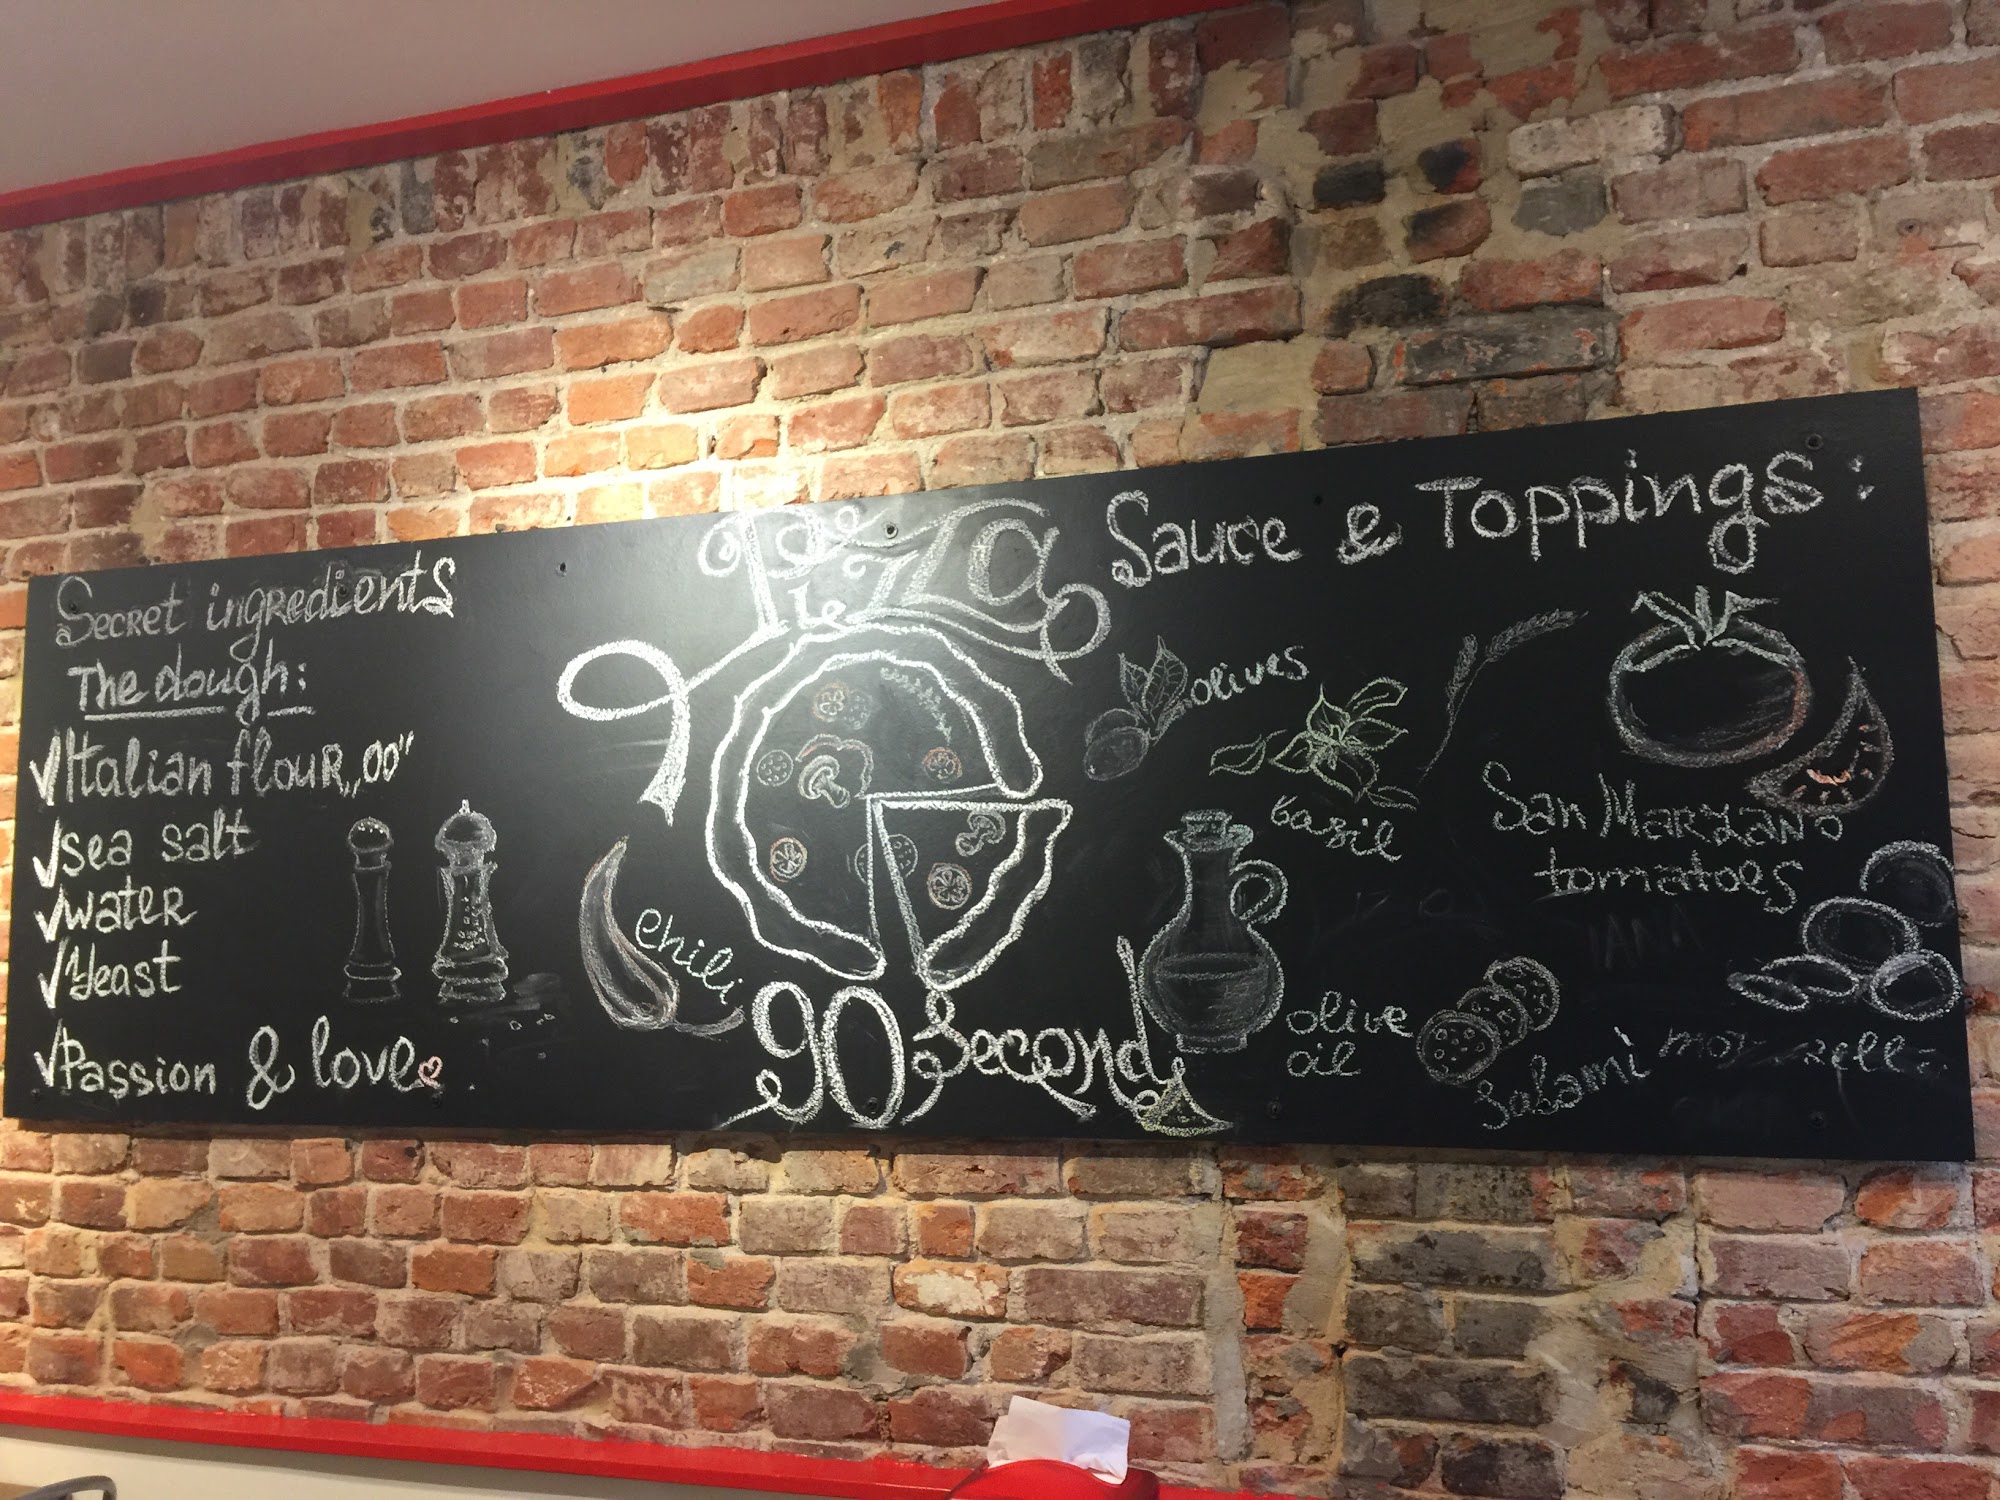 Secret ingredients
The dough:
√Italian flour „00"
√sea salt
√water
√Yeast
√Passion & love
Chili
Pizza
90 Second
Sauce & Toppings:
olives
basil
San Marzano
tomatoes
olive
oil
Salami